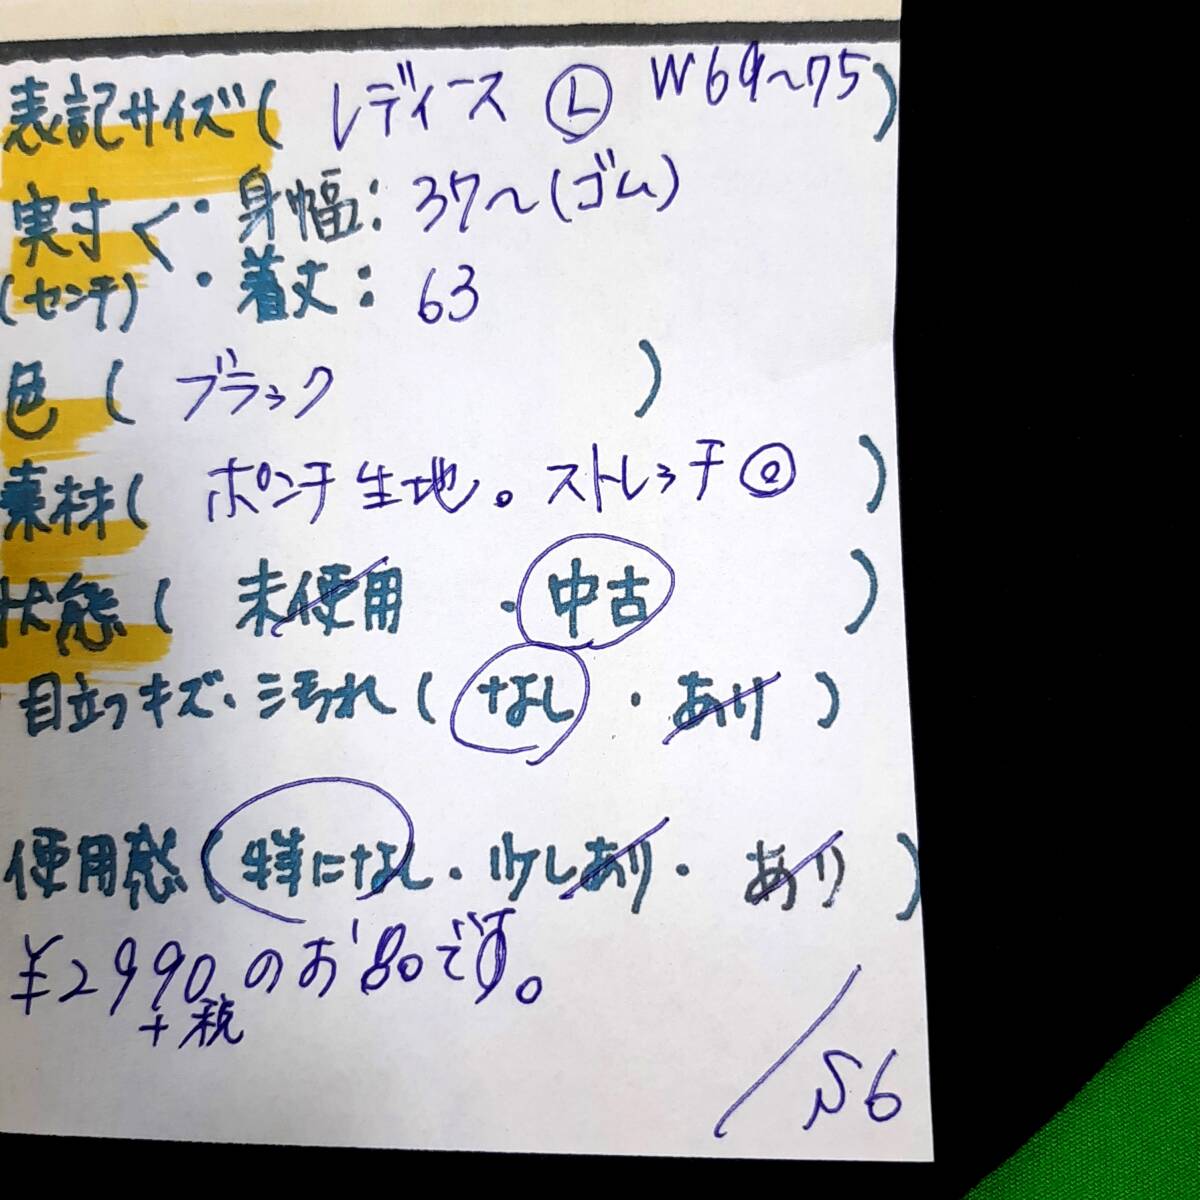 表記サイズ( レディース Ⓛ W69〜75 )
実寸く・身幅: 37〜(ゴム)
(センチ) ・着丈: 63
色 ( ブラック )
素材( ポンチ生地。ストレッチ◎ )
状態( 未使用 ・中古 )
目立つキズ・汚れ( なし ・ あり )
使用感(特になし・少しあり・ あり )
¥2990のお品です。
+税
/56